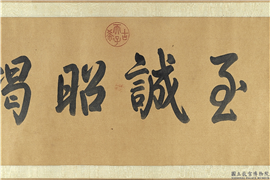 至誠昭
國立故宮博物院